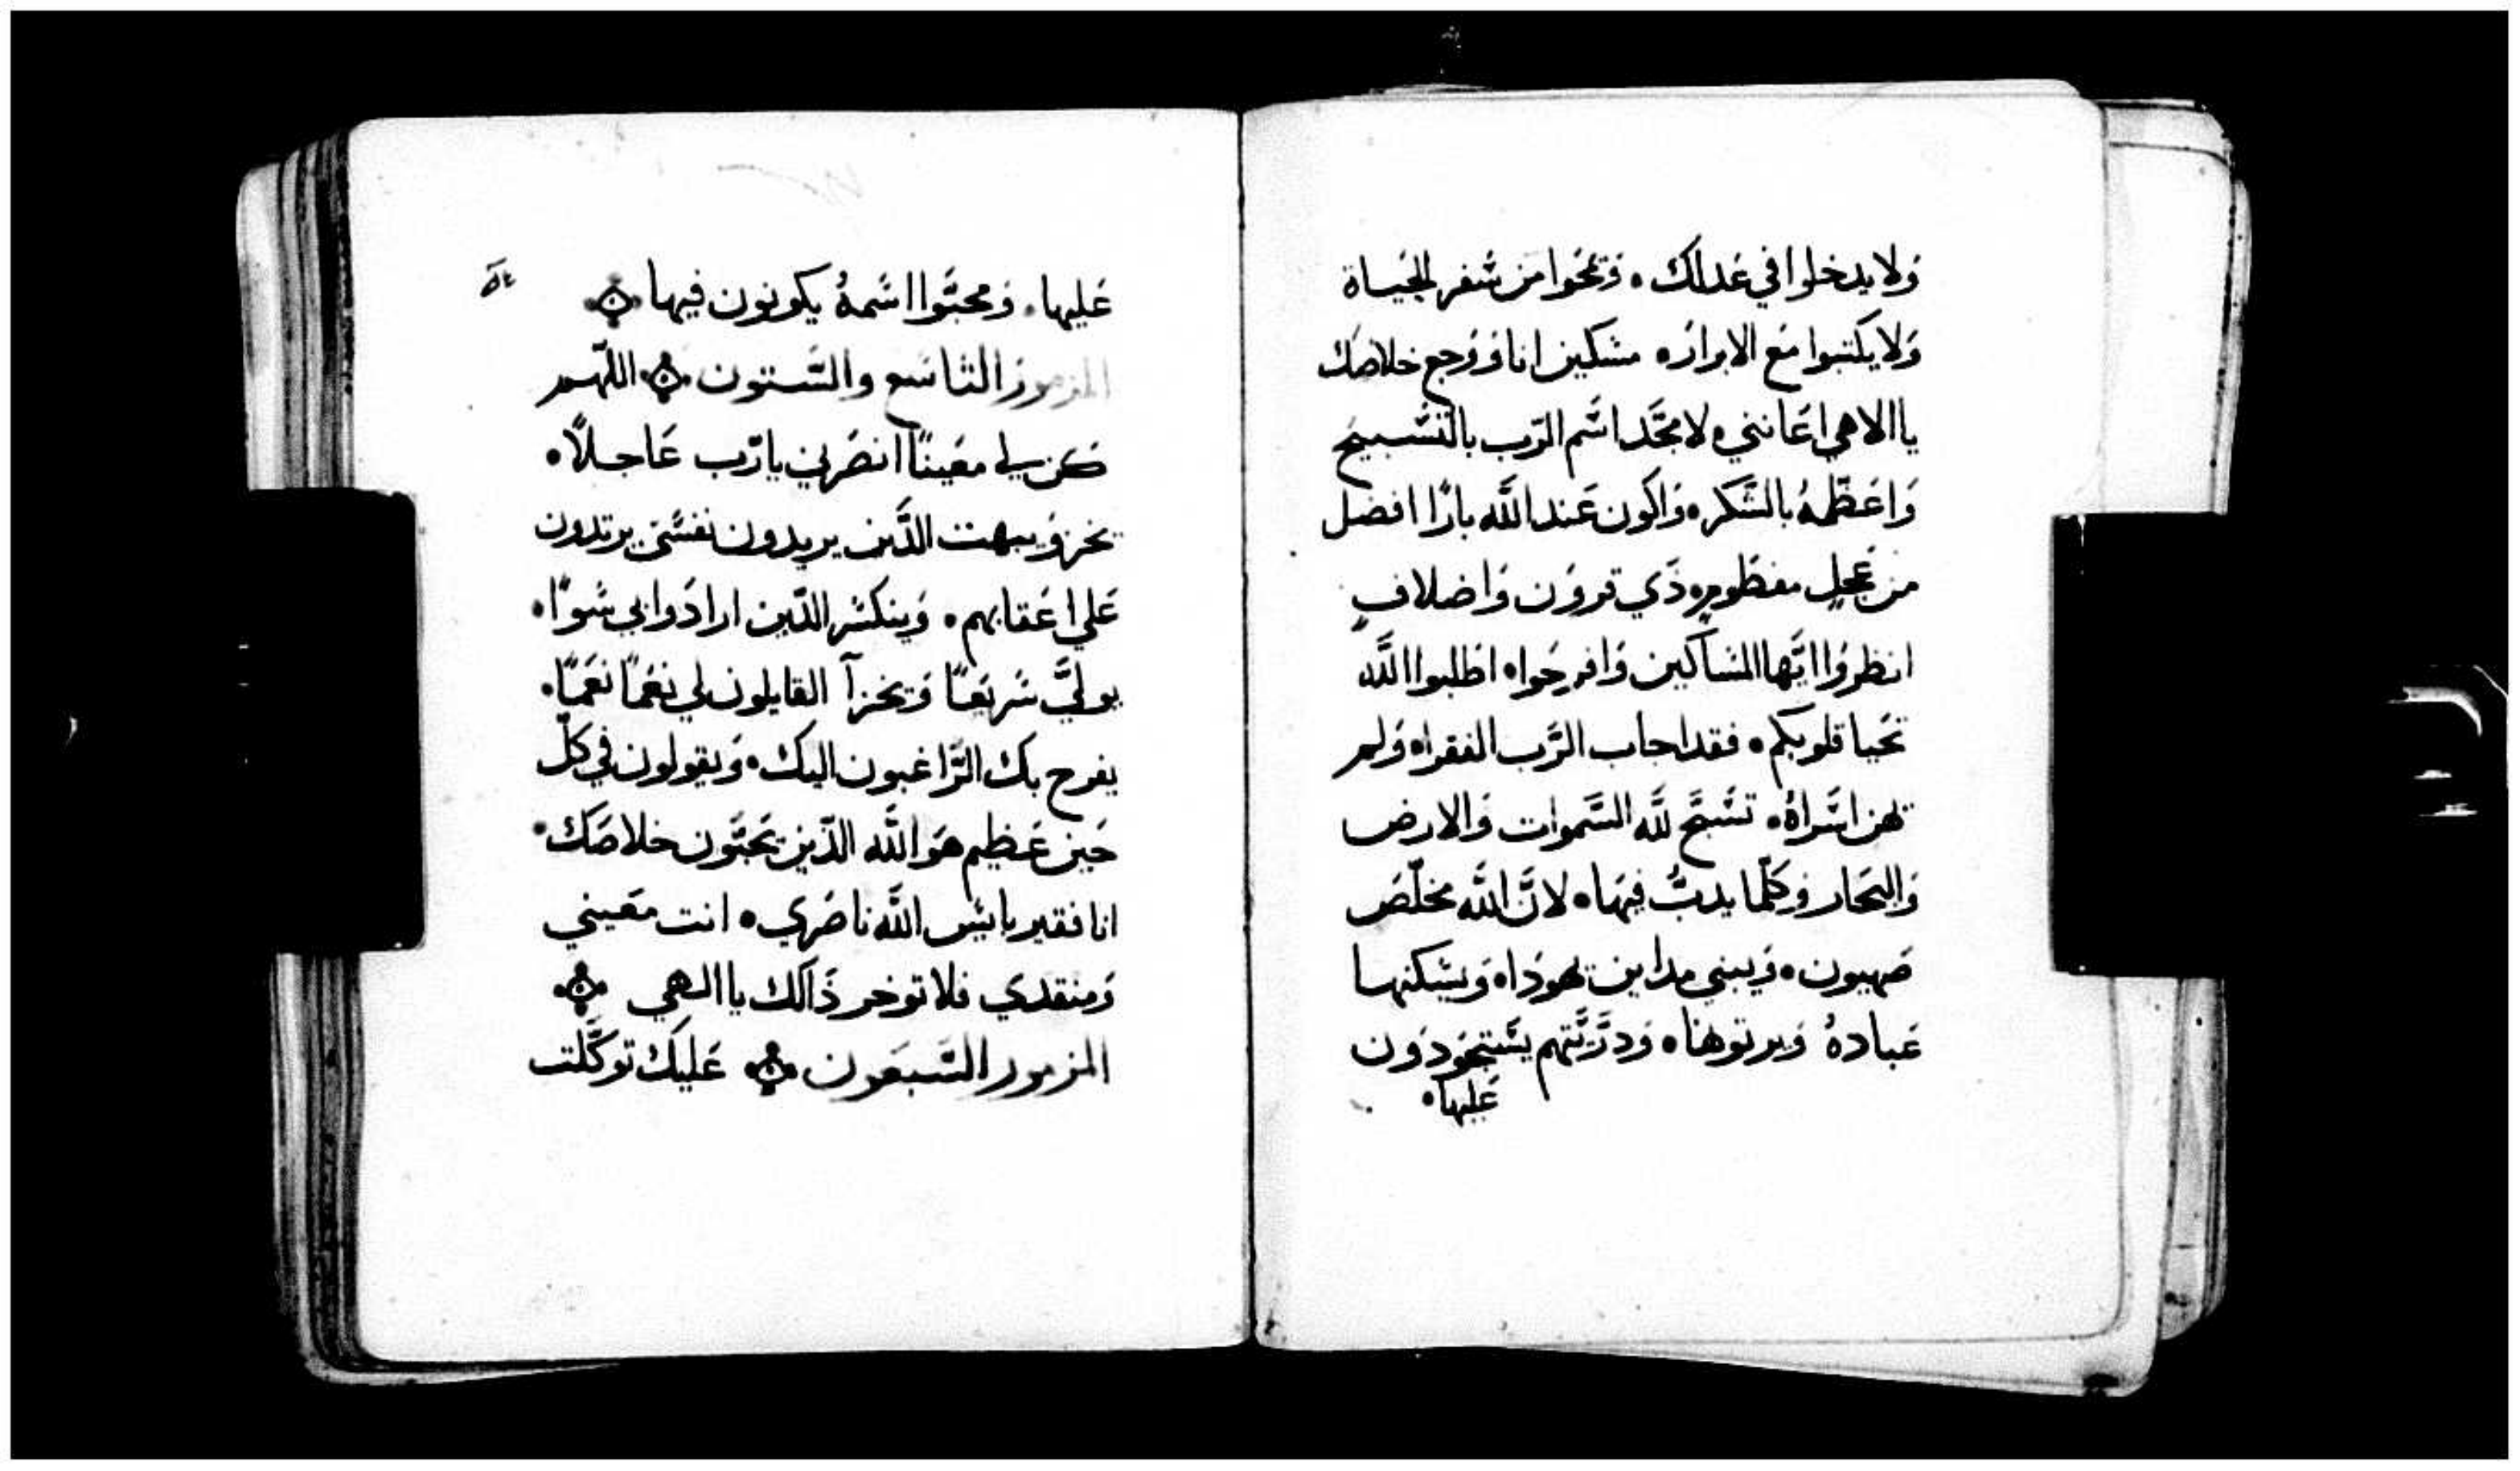 ولا يدخلوا في عدلك • وتمحوا من سفر الحياة
ولا يكتبوا مع الابرار • مسكين انا ووجع خلاصك
يا الاهي اعانني • لامجّد اسم الرّب بالتسبيح
واعظّمهُ بالشكر • واكون عند اللّه بارًا افضل
من عجلٍ مفطومٍ • ذي قرون واضلافٍ
انظروا ايّها المساكين وافرحوا • اطلبوا اللّه
تحيا قلوبكم • فقد اجاب الرّب الفقرا • ولم
يهن اسراهُ • تسبّح للّه السّموات والارض
والبحار وكلّما يدبُّ فيها • لانّ اللّه مخلّص
صهيون • ويبني مداين يهودا • ويسكنها
عبادهُ ويرتوها • ودرّيّتهم يستحودون
عليها •
عليها • ومحبّوا اسمهُ يكونون فيها
المزمور التاسع والسّتون اللّهم
كن لي معينًا انصرني يارّب عاجلًا •
يخز ويبهت الدّين يريدون نفسي يرتدون
علي اعقابهم • وينكسر الدّين ارادوا بي سوًا •
يوليَّ سريعًا ويخزآ القايلون لي نعمًا نعمًا •
يفرح بك الرّاغبون اليك • ويقولون في كلّ
حين عظيم هو اللّه الدّين يحبّون خلاصك •
انا فقير يايس اللّه ناصري • انت معيني
ومنقدي فلا توخر ذالك يا الهي
المزمور السّبعون عليك توكّلت